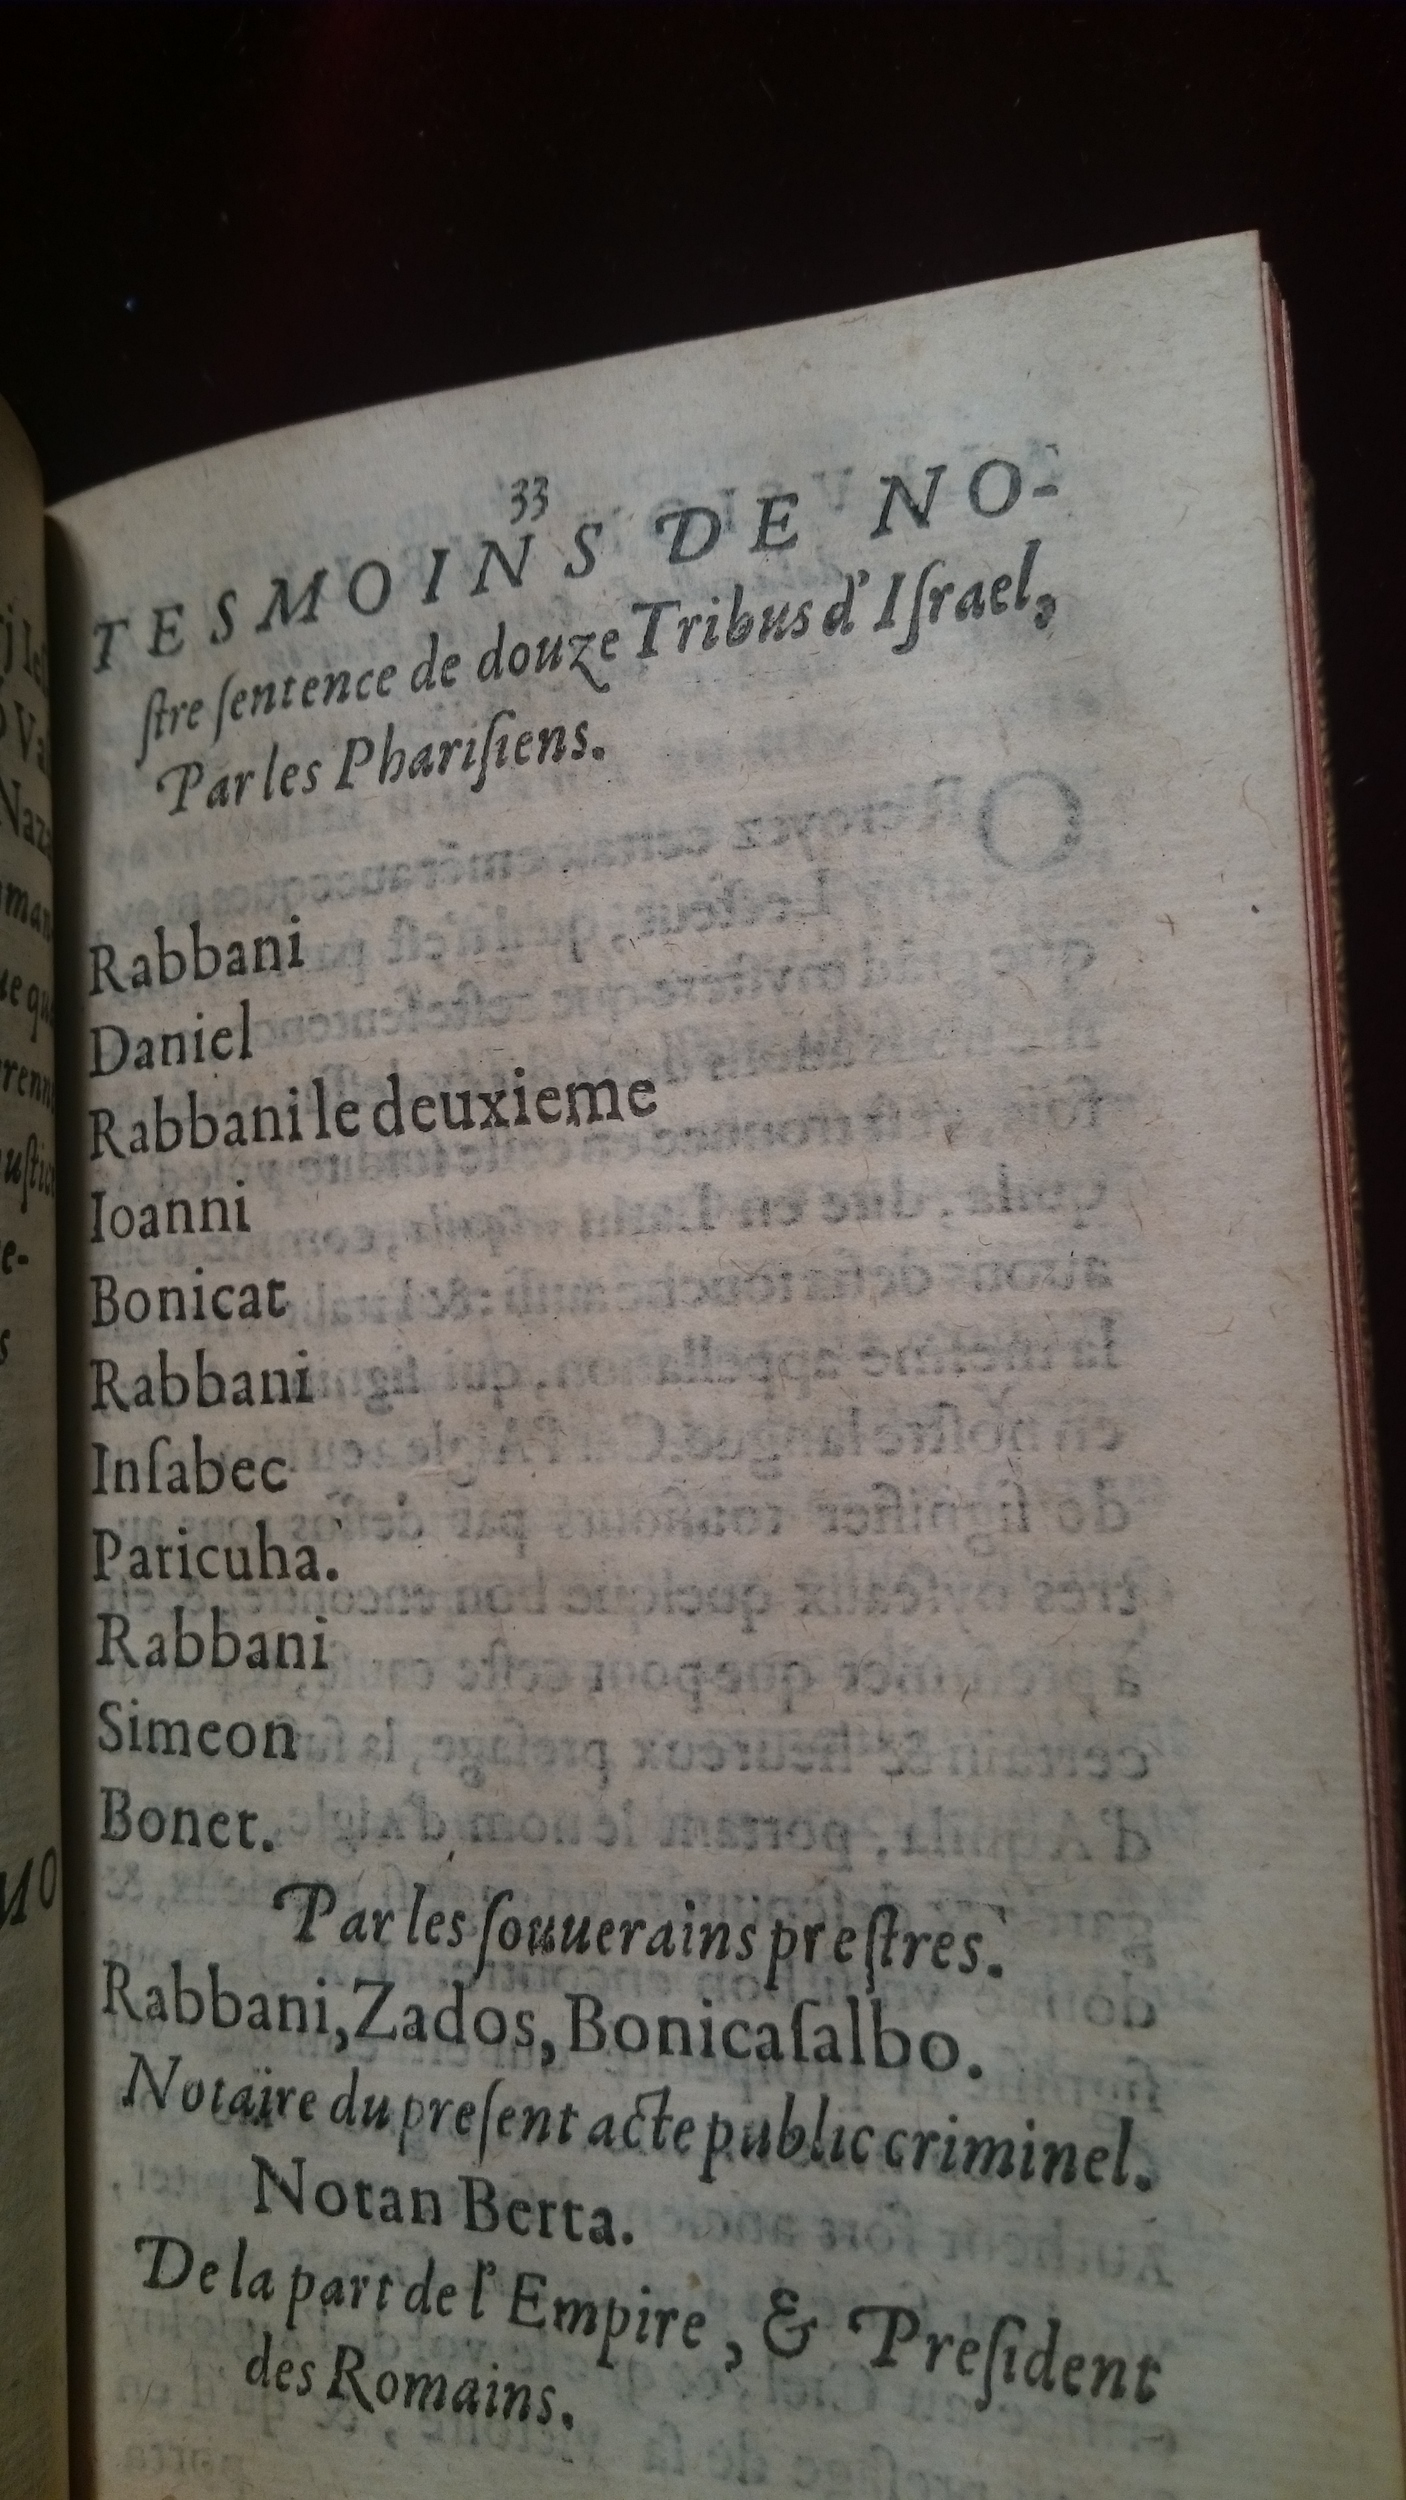 33
TESMOINS DE NO-
ſtre ſentence de douze Tribus d'Iſrael,
Par les Phariſiens.
Rabbani
Daniel
Rabbani le deuxieme
Ioanni
Bonicat
Rabbani
Inſabec
Paricuha.
Rabbani
Simeon
Bonet.
Par les ſouuerains preſtres.
Rabbani, Zados, Bonicaſalbo.
Notaire du preſent acte public criminel.
Notan Berta.
De la part de l'Empire, & Preſident
des Romains.